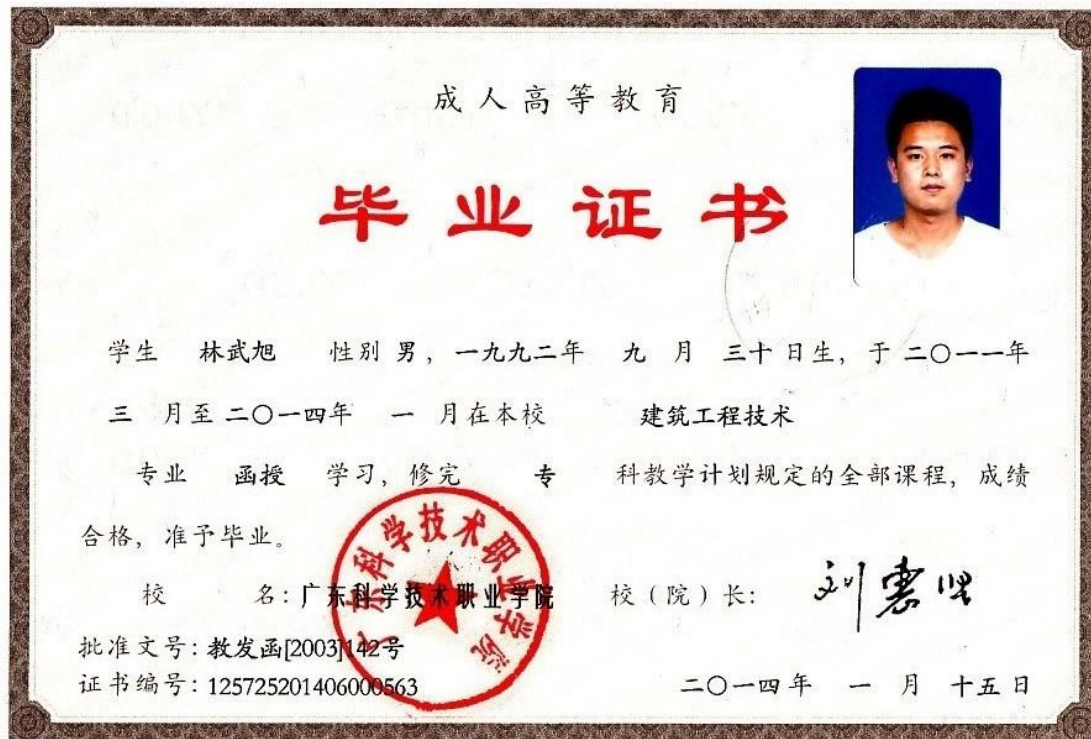 成人高等教育
毕业证书
学生 林武旭 性别 男，一九九二年 九 月 三十 日生，于 二〇一一年
三 月至 二〇一四年 一 月在本校 建筑工程技术
专业 函授 学习，修完 专 科教学计划规定的全部课程，成绩
合格，准予毕业。
校 名：广东科学技术职业学院 校（院）长：
广东科学技术职业学院
批准文号：教发函[2003]142号
证书编号：125725201406000563 二〇一四年 一 月 十五 日